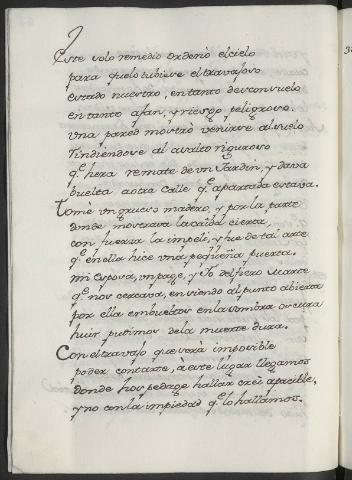 Este solo remedio ordenò el cielo
para que lo tubiese el travajoso
estado nuestro, en tanto desconsuelo
en tanto afan, y riesgo peligroso.
vna pared mostrò venirse al suelo
rindiendose al asalto riguroso
q.e hera remate de vn Jardin, y dava
buelta a otra calle q.e apartada estava.
Tomè vn grueso madero, y por la parte
donde mostrava la caida cierta,
con fuerza la impelì, y fue de tal arte
q.e en ella hice vna pequeña puerta.
mi esposa, vn page, y Yo del fiero marte
q.e nos cercava, en viendo al punto abierta
por ella embueltos en la sombra oscura
huir pudimos de la muerte dura.
Con el travajo que serà imposible
poder contarte, à este lugar llegamos
donde hospedage hallar creì apacible,
y no con la impiedad q.e lo hallamos.